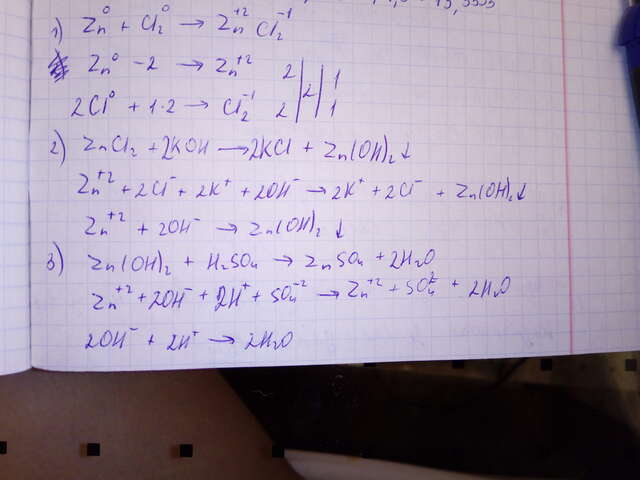 19,3555
1) Zn⁰ + Cl₂⁰ → Zn⁺² Cl₂⁻¹
Zn⁰ - 2 → Zn⁺² 2 | 2 | 1
2Cl⁰ + 1·2 → Cl₂⁻¹ 2 | | 1
2) ZnCl₂ + 2KOH → 2KCl + Zn(OH)₂↓
Zn⁺² + 2Cl⁻ + 2K⁺ + 2OH⁻ → 2K⁺ + 2Cl⁻ + Zn(OH)₂↓
Zn⁺² + 2OH⁻ → Zn(OH)₂ ↓
3) Zn(OH)₂ + H₂SO₄ → ZnSO₄ + 2H₂O
Zn⁺² + 2OH⁻ + 2H⁺ + SO₄⁻² → Zn⁺² + SO₄²⁻ + 2H₂O
2OH⁻ + 2H⁺ → 2H₂O